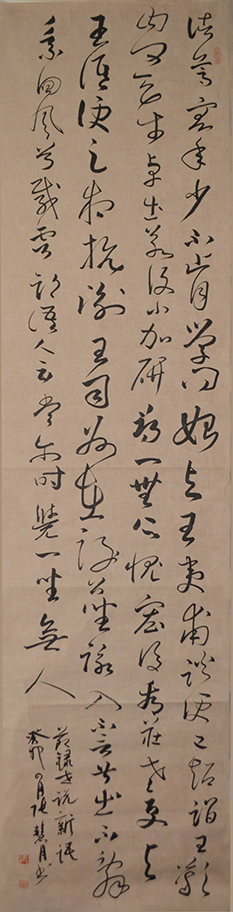 諸葛宏年少不肯學問始與王夷甫談便已超詣王歎
曰卿天才卓出若復小加研尋一無所愧宏後看莊老更與
王語便足相抗衡王司州在謝公坐詠入不言兮出不辭
乘回風兮載雲旗語人云當爾時覺一坐無人
節錄世說新語
癸卯月慧月书